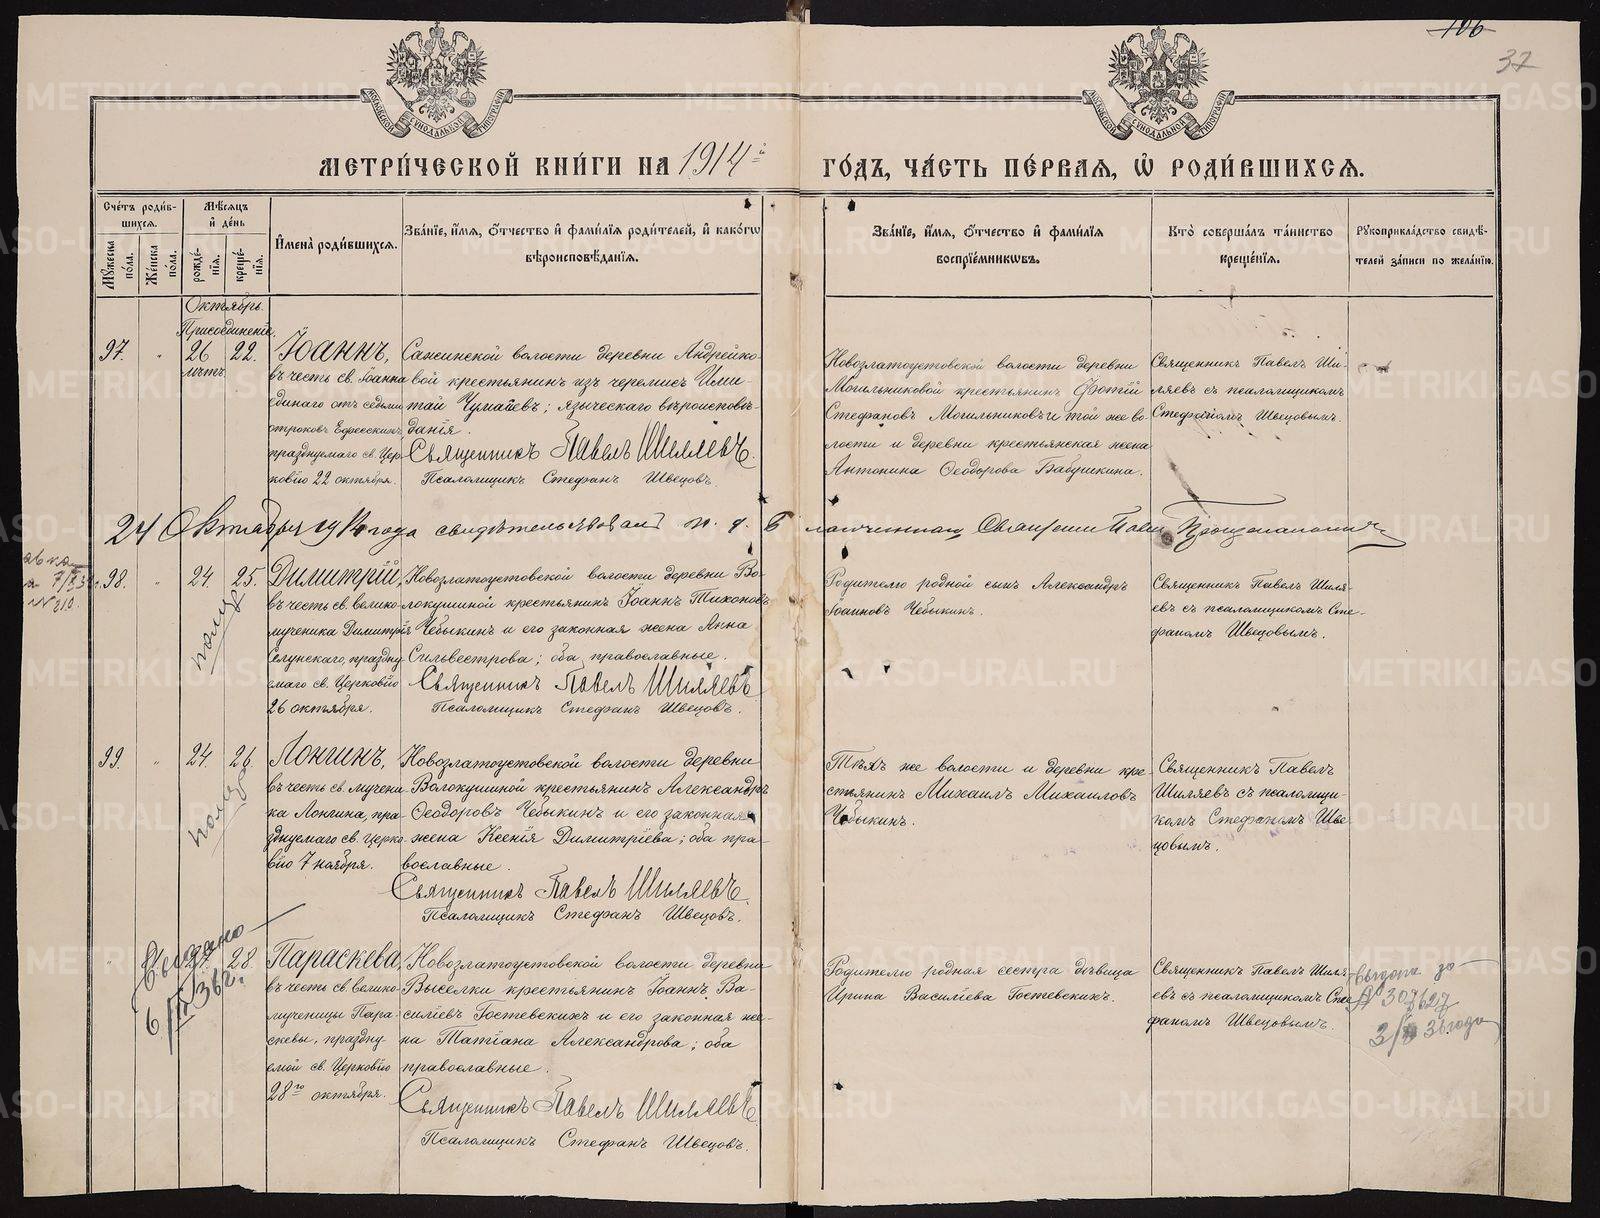 106
32
МОСКОВСКОЙ СѴНОДАЛЬНОЙ ТИПОГРАФІИ
МОСКОВСКОЙ СѴНОДАЛЬНОЙ ТИПОГРАФІИ
МЕТРИ́ЧЕСКОЙ КНИ́ГИ НА 1914й ГО́ДЪ, ЧА́СТЬ ПЕ́РВАЯ, Ѡ РОДИ́ВШИХСЯ.
Сче́тъ роди́в-
шихся.
Мꙋжеска по́ла.
Же́нска по́ла.
Мѣ́сяцъ
и҆ де́нь
рожде́-
нїя.
креще́-
нїя.
И҆мена̀ роди́вшихся.
Зва́нїе, и҆́мя, ѻ҆́тчество и҆ фами́лїя роди́телей, и҆ како́гѡ
вѣроисповѣ́данїя.
Зва́нїе, и҆́мя, ѻ҆́тчество и҆ фами́лїя
воспрїе́мникѡвъ.
Кто̀ соверша́лъ та́инство
креще́нїя.
Рꙋкоприкла́дство свидѣ́-
телей за́писи по жела́нїю.
Октябрь.
Присоединеніе.
97. " 26 22.
лѣтъ
Іоаннъ,
въ честь св. Іоанна
единаго отъ седьми
отроковъ Ефесскихъ,
празднуемаго св. Цер
ковію 22 октября.
Сажинской волости деревни Андрейко-
вой крестьянинъ изъ черемисъ Ими-
тай Чумаевъ; языческаго вѣроисповѣ-
данія.
Священникъ Павелъ Шиляевъ.
Псаломщикъ Стефанъ Швецовъ.
Новозлатоустовской волости деревни
Могильниковой крестьянинъ Фотій
Стефановъ Могильниковъ и той же во-
лости и деревни крестьянская жена
Антонина Ѳеодорова Бабушкина.
Священникъ Павелъ Ши-
ляевъ съ псаломщикомъ
Стефаномъ Швецовымъ.
24 Октября 1914 года свидѣтельствовалъ
98. " 24. 25.
Димитрій,
въ честь св. велико-
мученика Димитрія
Селунскаго, праздну
емаго св. Церковію
26 октября.
Новозлатоустовской волости деревни Во-
локушиной крестьянинъ Іоаннъ Тихоновъ
Чебыкинъ и его законная жена Анна
Сильвестрова; оба православные.
Священникъ Павелъ Шиляевъ
Псаломщикъ Стефанъ Швецовъ.
Родителю родной сынъ Александръ
Іоанновъ Чебыкинъ.
Священникъ Павелъ Шиля-
евъ съ псаломщикомъ Сте-
фаномъ Швецовымъ.
99. " 24. 26.
Лонгинъ,
въ честь св. мучени
ка Лонгина, пра-
зднуемаго св. Церко
вію 7 ноября.
Новозлатоустовской волости деревни
Волокушиной крестьянинъ Александръ
Ѳеодоровъ Чебыкинъ и его законная
жена Ксенія Димитріева; оба пра-
вославные.
Священникъ Павелъ Шиляевъ.
Псаломщикъ Стефанъ Швецовъ.
Тѣхъ же волости и деревни кре-
стьянинъ Михаилъ Михаиловъ
Чебыкинъ.
Священникъ Павелъ
Шиляевъ съ псаломщи-
комъ Стефаномъ Шве
цовымъ.
Выдано
6/III 36 г.
28.
Параскева,
въ честь св. велико-
мученицы Пара-
скевы, праздну
емой св. Церковію
28го октября.
Новозлатоустовской волости деревни
Выселки крестьянинъ Іоаннъ Ва-
силіевъ Гостевскихъ и его законная же-
на Татіана Александрова; оба
православные.
Священникъ Павелъ Шиляевъ
Псаломщикъ Стефанъ Швецовъ.
Родителю родная сестра дѣвица
Ирина Василіева Гостевскихъ.
Священникъ Павелъ Шиля
евъ съ псаломщикомъ Сте
фаномъ Швецовымъ.
№ 307627
36 года
METRIKI.GASO-URAL.RU